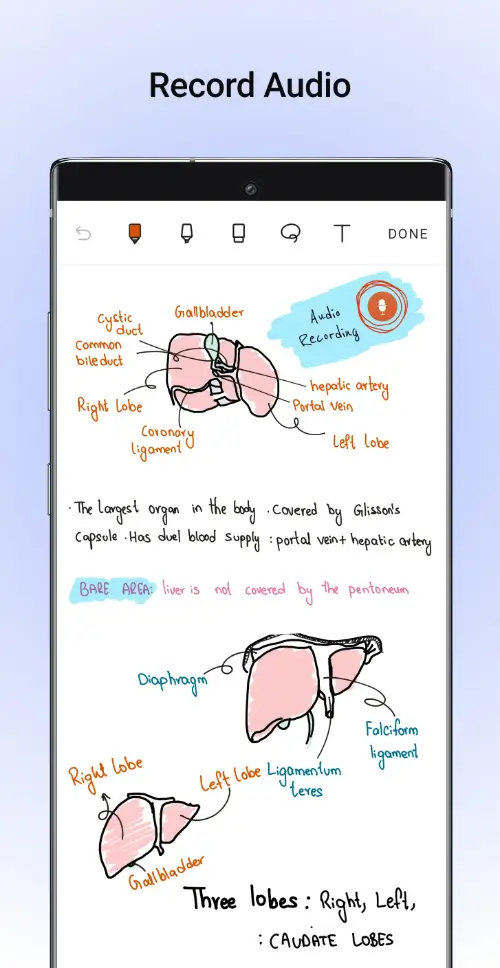 Record Audio
T
DONE
Audio
Recording
Gallbladder
Cystic
duct
Common
bile duct
Right Lobe
Coronary
ligament
hepatic artery
Portal vein
Left lobe
· The largest organ in the body . Covered by Glisson's
Capsule · Has duel blood supply : portal vein + hepatic artery
BARE AREA: liver is not covered by the pentoneum
Diaphragm
Falciform
ligament
Ligamentum
teres
Right lobe
Left lobe
Gallbladder
Three lobes : Right, Left,
: CAUDATE LOBES